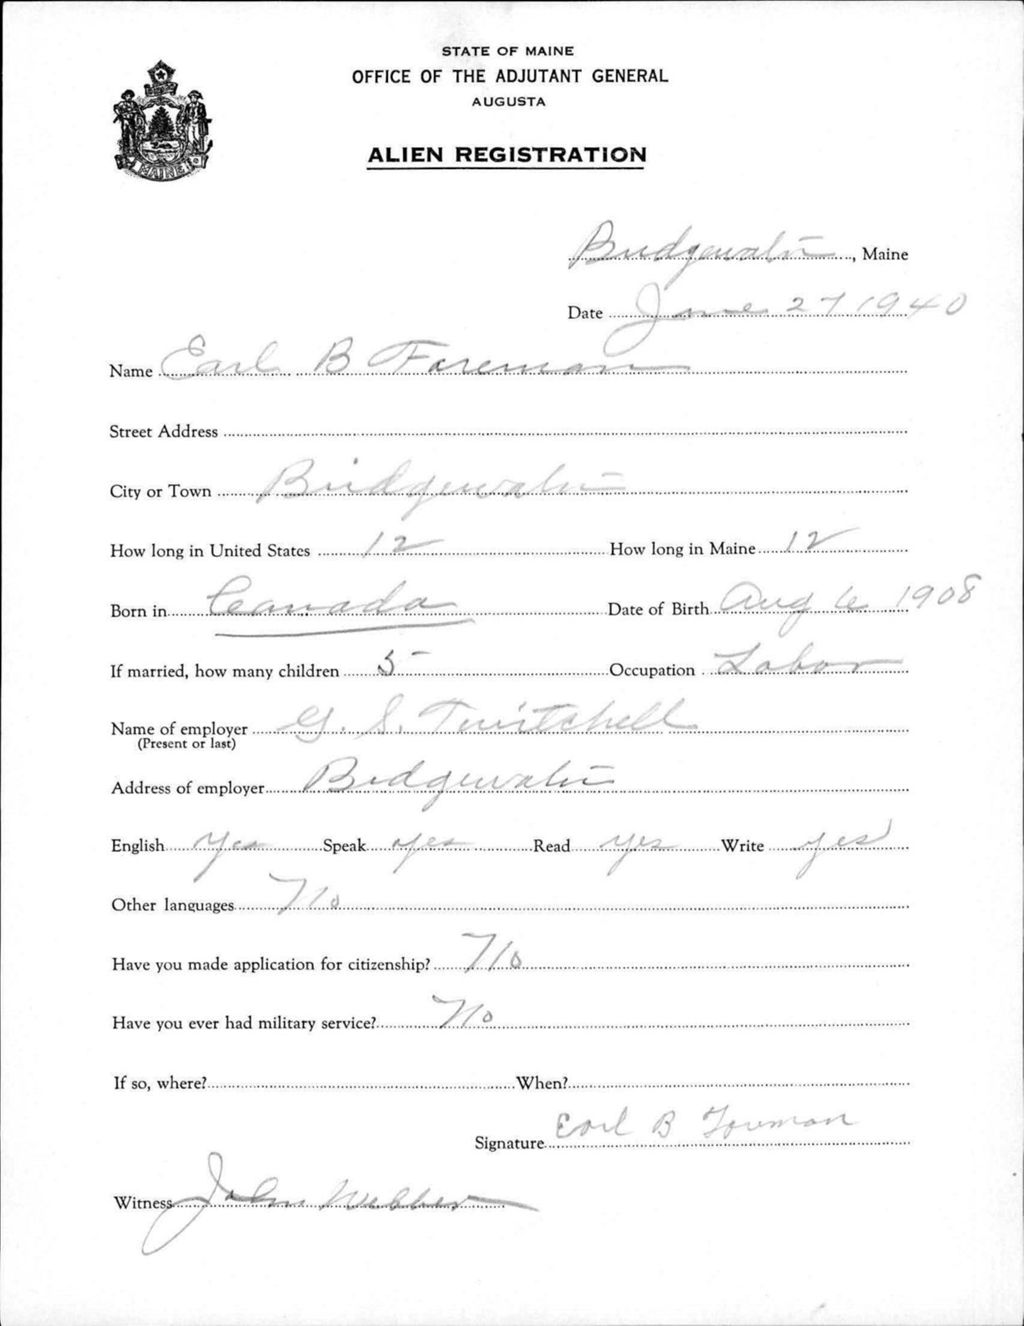 STATE OF MAINE
OFFICE OF THE ADJUTANT GENERAL
AUGUSTA
ALIEN REGISTRATION
MAINE
Bridgewater, Maine
Date June 27 1940
Name Earl B Foreman
Street Address
City or Town Bridgewater
How long in United States 12 How long in Maine 12
Born in Canada Date of Birth Aug 6 1908
If married, how many children 5 Occupation Labor
Name of employer G. S. Twitchell
(Present or last)
Address of employer Bridgewater
English Yes Speak yes Read yes Write yes
Other languages No
Have you made application for citizenship? No
Have you ever had military service? No
If so, where? When?
Signature Earl B Forman
Witness John Webber